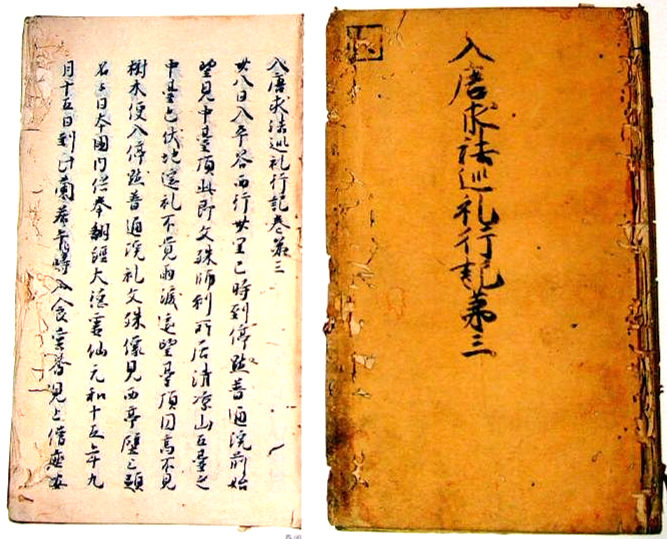 入唐求法巡礼行記第三
入唐求法巡礼行記巻第三
廿八日入平谷西行卅里巳時到停點普通院前始
望見中臺頂此即文殊師利所居清涼山五臺之
中臺也伏地遥礼不覚雨涙遥望臺頂圓高不見
樹木便入停點普通院礼文殊像見西亭壁之題
名云日本國内供奉翻経大徳霊仙元和十五年九
月十五日到此蘭若 時入食堂 見上僧座安